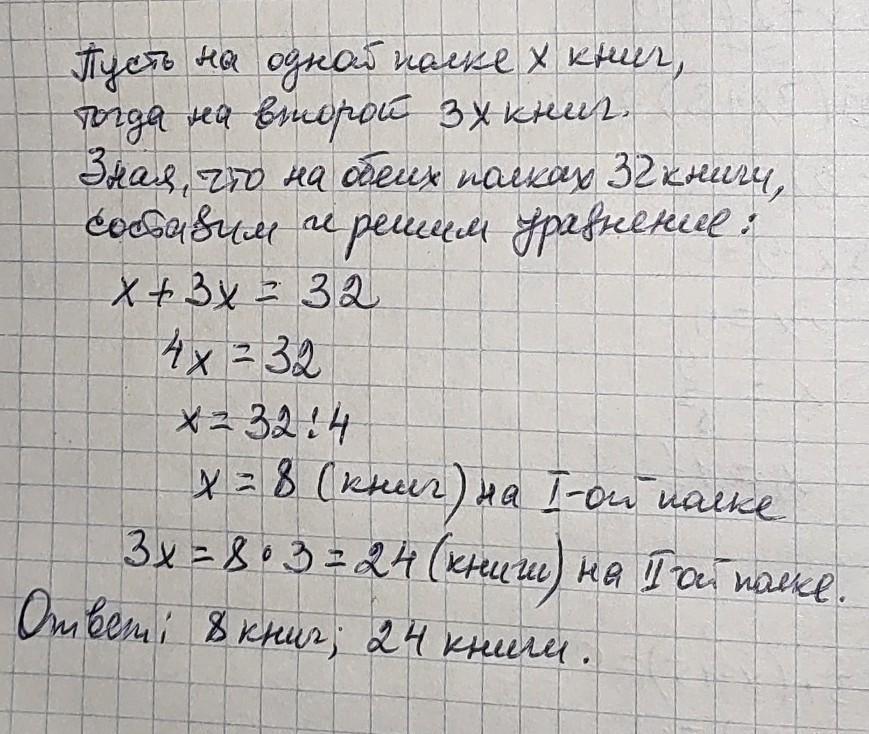 Пусть на одной полке x книг,
тогда на второй 3x книг.
Зная, что на обеих полках 32 книги,
составим и решим уравнение:
x + 3x = 32
4x = 32
x = 32 : 4
x = 8 (книг) на I-ой полке
3x = 8 · 3 = 24 (книги) на II-ой полке.
Ответ: 8 книг; 24 книги.